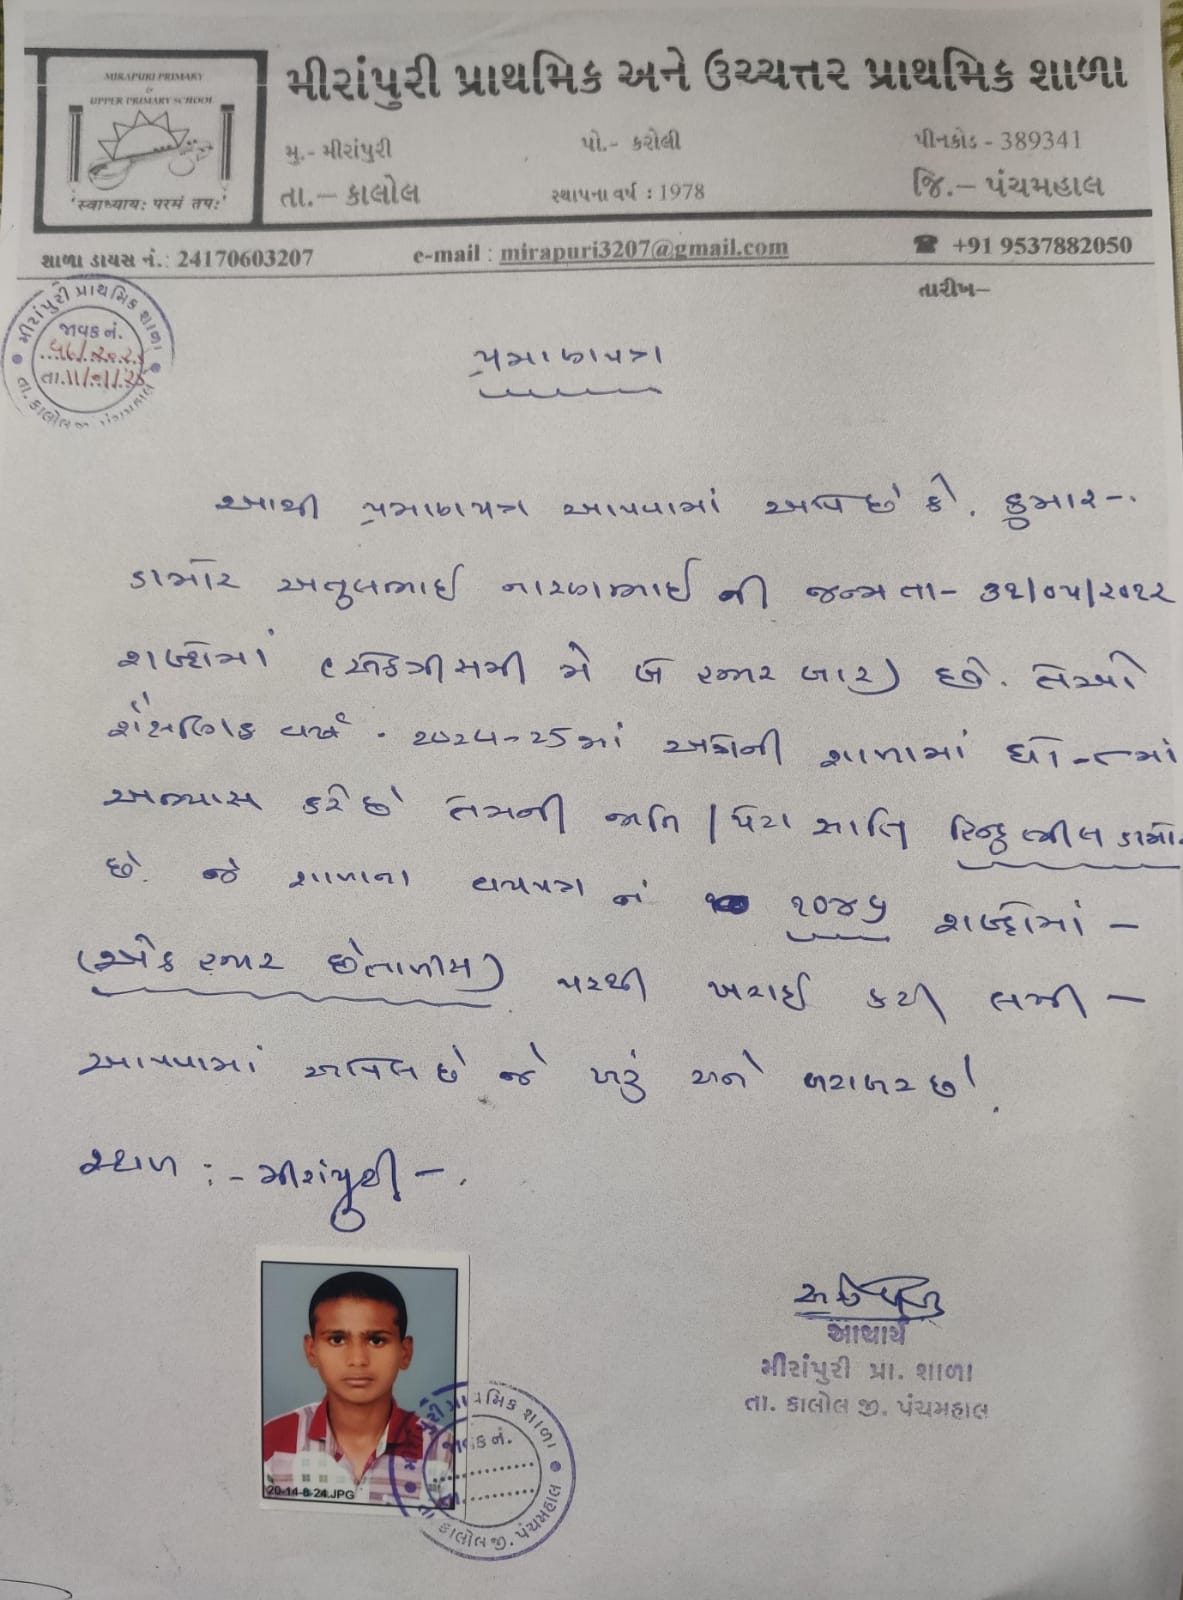 MIRAPURI PRIMARY
&
UPPER PRIMARY SCHOOL
'स्वाध्याय: परमं तप:'
મીરાંપુરી પ્રાથમિક અને ઉચ્ચત્તર પ્રાથમિક શાળા
મુ.- મીરાંપુરી પો.- કરોલી પીનકોડ - 389341
તા.– કાલોલ સ્થાપના વર્ષ : 1978 જિ.– પંચમહાલ
શાળા ડાયસ નં.: 24170603207 e-mail : mirapuri3207@gmail.com ☎ +91 9537882050
તારીખ–
મીરાંપુરી પ્રાથમિક શાળા
જાવક નં.
તા.
તા. કાલોલ જી. પંચમહાલ
પ્રમાણપત્ર
આથી પ્રમાણપત્ર આપવામાં આવે છે કે, કુમાર-.
ડામોર અતુલભાઈ નારણભાઈ ની જન્મ તા- ૩૧/૦૫/૨૦૧૨
શબ્દોમાં (એકત્રીસમી મે બે હજાર બાર) છે. તેઓ
શૈક્ષણિક વર્ષ - ૨૦૨૪-૨૫માં અત્રેની શાળામાં ધો-૮માં
અભ્યાસ કરે છે તેમની જાતિ / પેટા જાતિ હિન્દુ ભીલ ડામોર
છે. જે શાળાના વયપત્રક નં ૧૦૪૬ શબ્દોમાં -
(એક હજાર છેતાળીસ) પરથી ખરાઈ કરી લખી -
આપવામાં આવેલ છે જે ખરું અને બરાબર છે.
સ્થળ :- મીરાંપુરી -.
20-14-8-24.JPG
મીરાંપુરી પ્રાથમિક શાળા
જાવક નં.
તા.
તા. કાલોલ જી. પંચમહાલ
આચાર્ય
મીરાંપુરી પ્રા. શાળા
તા. કાલોલ જી. પંચમહાલ